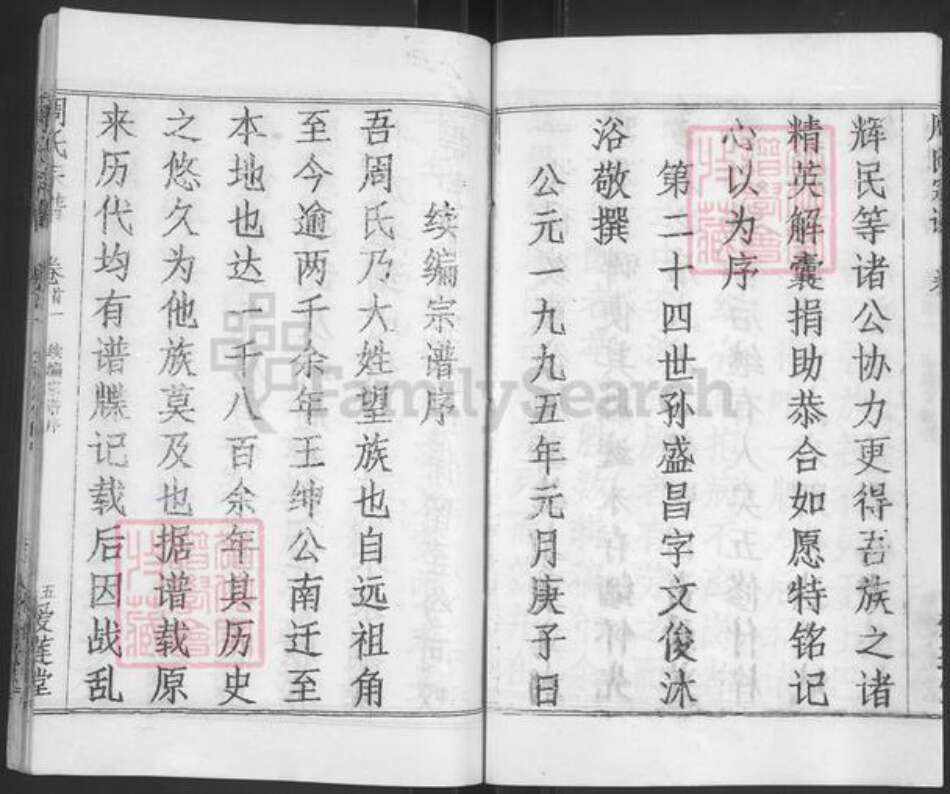 辉民等诸公协力更得吾族之诸
精英解囊捐助恭合如愿特铭记
心以为序
第二十四世孙盛昌字文俊沐
浴敬撰
公元一九九五年元月庚子日
续编宗谱序
吾周氏乃大姓望族也自远祖角
至今逾两千余年王绅公南迁至
本地也达一千八百余年其历史
之悠久为他族莫及也据谱载原
来历代均有谱牒记载后因战乱
周氏宗谱 卷首一 续编宗谱序 五 爱莲堂
FamilySearch